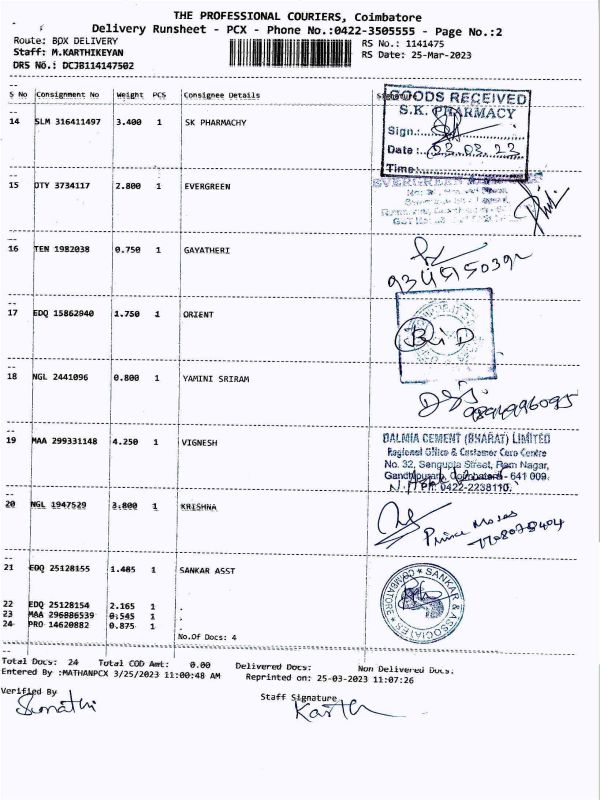 THE PROFESSIONAL COURIERS, Coimbatore
Delivery Runsheet - PCX - Phone No.:0422-3505555 - Page No.:2
Route: BOX DELIVERY
RS No.: 1141475
Staff: M.KARTHIKEYAN
RS Date: 25-Mar-2023
DRS No.: DCJB114147502
S No Consignment No Weight PCS Consignee Details Signature
14 SLM 316411497 3.400 1 SK PHARMACHY
GOODS RECEIVED
S.K. PHARMACY
Sign.:
Date :
Time:
15 DTY 3734117 2.800 1 EVERGREEN
EVERGREEN
16 TEN 1982038 0.750 1 GAYATHERI
17 EDQ 15862940 1.750 1 ORIENT
18 NGL 2441096 0.800 1 YAMINI SRIRAM
19 MAA 299331148 4.250 1 VIGNESH
DALMIA CEMENT (BHARAT) LIMITED
Regional Office & Customer Care Centre
No. 32, Sengupta Street, Ram Nagar,
Gandhipuram, Coimbatore - 641 009.
PH: 0422-2238110,
20 NGL 1947529 3.800 1 KRISHNA
Prince Moses
21 EDQ 25128155 1.485 1 SANKAR ASST
SANKAR & ASSOCIATES
COIMBATORE
22 EDQ 25128154 2.165 1 .
23 MAA 296886539 0.545 1 .
24 PRO 14620882 0.875 1 .
No.Of Docs: 4
Total Docs: 24 Total COD Amt: 0.00 Delivered Docs: Non Delivered Docs:
Entered By :MATHANPCX 3/25/2023 11:00:48 AM Reprinted on: 25-03-2023 11:07:26
Verified By Staff Signature
Sumathi Karth